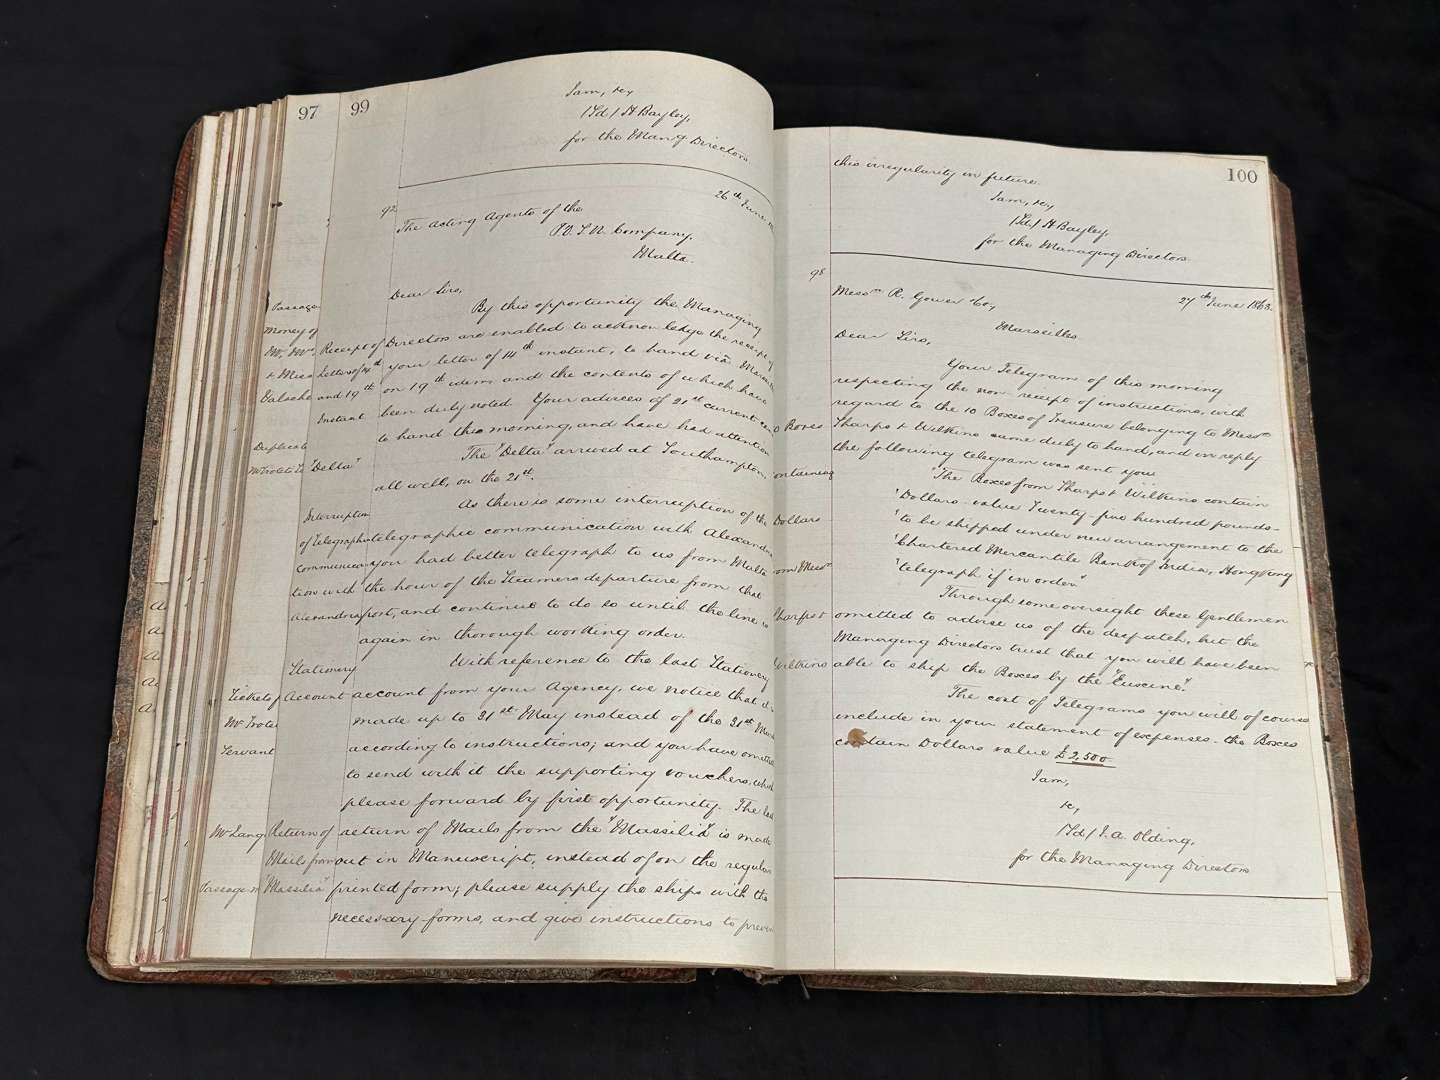 97
99
Iam, &c,
/Sd/ H Bayley,
for the Manag Directors
92
26th June
The Acting Agents of the
P. & O. S. N. Company,
Malta.
Dear Sirs,
By this opportunity the Managing
Directors are enabled to acknowledge the receipt of
your letter of 14th instant, to hand viâ
on 19th idem, and the contents of which have
been duly noted. Your advices of 21st current
to hand this morning, and have had attention
The "Delta" arrived at Southampton,
all well, on the 21st.
As there is some interruption of the
telegraphic communication with Alexandria
you had better telegraph to us from Malta
the hour of the Steamers departure from that
port, and continue to do so until the line is
again in thorough working order.
With reference to the last Stationery
account from your Agency, we notice that
made up to 31st May instead of the 31st
according to instructions; and you have
to send with it the supporting vouchers, which
please forward by first opportunity. The last
return of Mails from the "Massilia" is made
out in Manuscript, instead of on the regular
printed form; please supply the ships with the
necessary forms, and give instructions to
Receipt of
Letters of 14th
and 19th
Instant
"Delta"
Interruption
of Telegraphic
communica-
tion with
Alexandria
Stationery
Account
Return of
Mails from
"Massilia"
Passage
Money of
& Miss
Duplicate
Tickets of
Servant
Mr Lang
100
this irregularity in future.
Iam, &c,
/Sd/ H Bayley,
for the Managing Directors
98
27th June 1863.
Messrs R. Gower & Co,
Marseilles
Dear Sirs,
Your Telegram of this morning
respecting the non-receipt of instructions, with
regard to the 10 Boxes of Treasure belonging to Messrs
Tharps & Wilkins came duly to hand, and in reply
the following telegram was sent you
"The Boxes from Tharps & Wilkins contain
"Dollars value Twenty-five hundred pounds-
"to be shipped under new arrangement to the
"Chartered Mercantile Bank of India, Hong Kong
"telegraph if in order"
Through some oversight these Gentlemen
omitted to advise us of the despatch, but the
Managing Directors trust that you will have been
able to ship the Boxes by the "Euxine".
The cost of Telegrams you will of course
include in your statement of expenses - the Boxes
contain Dollars value £2,500
Iam,
&c,
/Sd/ I. A. Olding,
for the Managing Directors
Boxes
ontaining
Dollars
rom Messrs
Tharps &
Wilkins